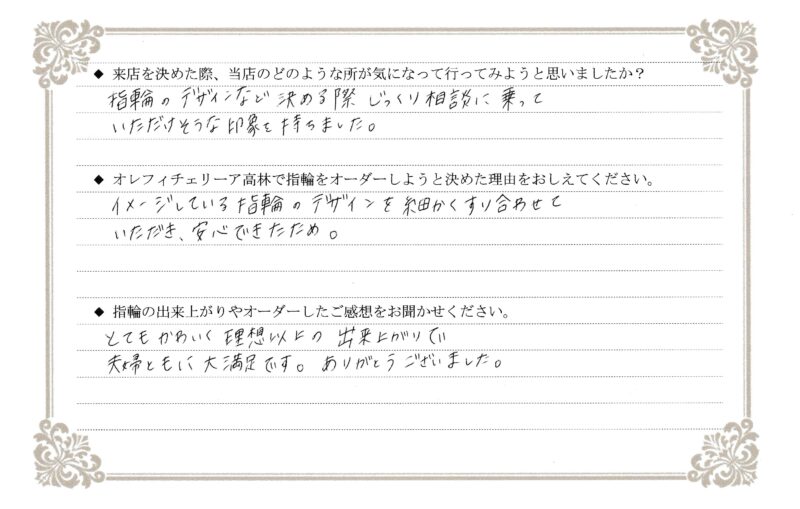 ◆ 来店を決めた際、当店のどのような所が気になって行ってみようと思いましたか？
指輪のデザインなど決める際じっくり相談に乗って
いただけそうな印象を持ちました。
◆ オレフィチェリーア高林で指輪をオーダーしようと決めた理由をおしえてください。
イメージしている指輪のデザインを細かくすり合わせて
いただき、安心できたため。
◆ 指輪の出来上がりやオーダーしたご感想をお聞かせください。
とてもかわいく理想以上の出来上がりで
夫婦ともに大満足です。ありがとうございました。